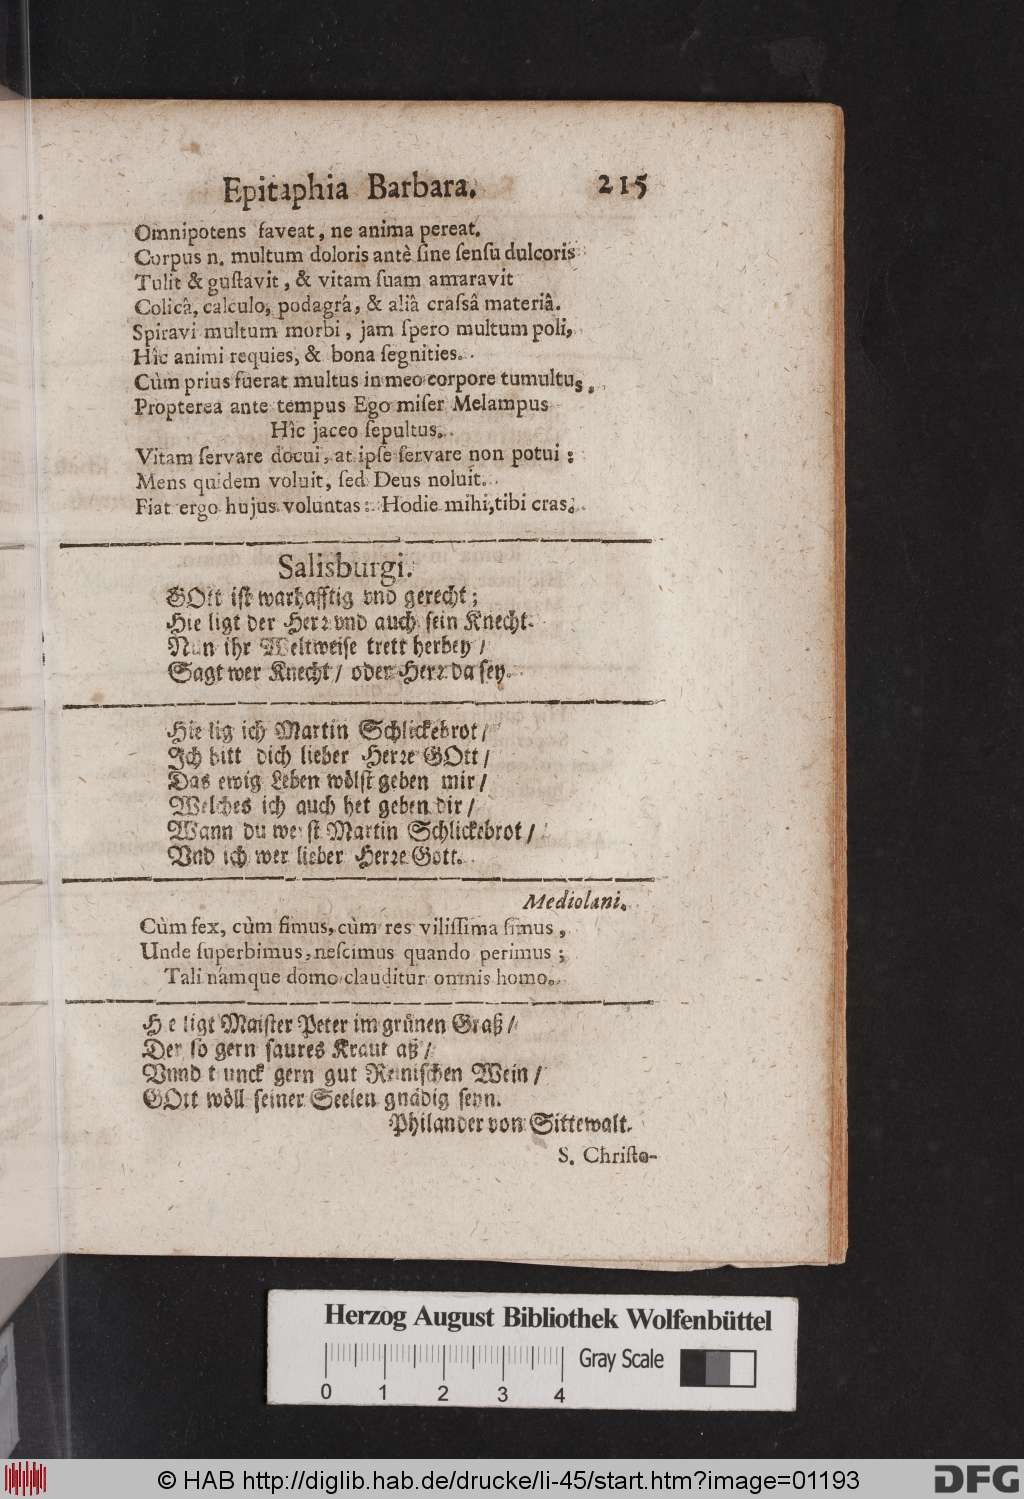 Epitaphia Barbara. 215
Omnipotens faveat, ne anima pereat.
Corpus n. multum doloris antè sine sensu dulcoris
Tulit & gustavit, & vitam suam amaravit
Colicâ, calculo, podagrâ, & aliâ crassâ materiâ.
Spiravi multum morbi, jam spero multum poli,
Hîc animi requies, & bona segnities.
Cùm prius fuerat multus in meo corpore tumultus,
Propterea ante tempus Ego miser Melampus
Hîc jaceo sepultus.
Vitam servare docui, at ipse servare non potui:
Mens quidem voluit, sed Deus noluit.
Fiat ergo hujus voluntas: Hodie mihi, tibi cras.
Salisburgi.
GOtt ist warhafftig vnd gerecht;
Hie ligt der Herr vnd auch sein Knecht.
Nun ihr Weltweise trett herbey /
Sagt wer Knecht / oder Herr da sey.
Hie lig ich Martin Schlickebrot /
Ich bitt dich lieber Herre GOtt /
Das ewig Leben wölst geben mir /
Welches ich auch het geben dir /
Wann du werst Martin Schlickebrot /
Vnd ich wer lieber Herre Gott.
Mediolani.
Cùm fex, cùm fimus, cùm res vilissima simus,
Unde superbimus, nescimus quando perimus;
Tali námque domo clauditur omnis homo.
Hie ligt Maister Peter im grünen Graß /
Der so gern saures Kraut aß /
Vnnd trunck gern gut Reinischen Wein /
GOtt wöll seiner Seelen gnädig seyn.
Philander von Sittewalt.
S. Christo-
Herzog August Bibliothek Wolfenbüttel
Gray Scale
0 1 2 3 4
© HAB http://diglib.hab.de/drucke/li-45/start.htm?image=01193
DFG